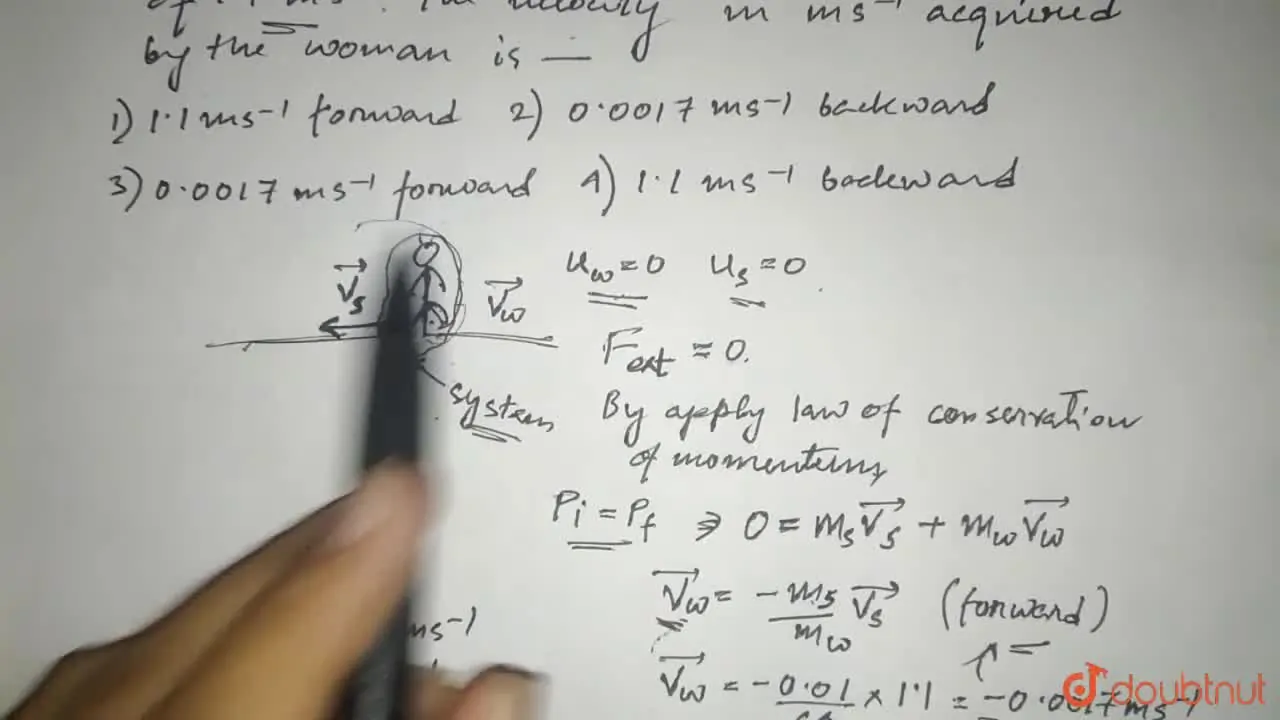 of 1.1 ms⁻¹. The velocity in ms⁻¹ acquired
by the woman is —
1) 1.1 ms⁻¹ forward 2) 0.0017 ms⁻¹ backward
3) 0.0017 ms⁻¹ forward 4) 1.1 ms⁻¹ backward
V⃗s V⃗w
u_w = 0 u_s = 0
F_ext = 0.
system
By apply law of conservation
of momentum
Pi = Pf ⇒ 0 = m_s V⃗s + m_w V⃗w
V⃗w = -m_s/m_w V⃗s (forward)
ms⁻¹
V⃗w = -0.01 × 1.1 = -0.0017 ms⁻¹
doubtnut